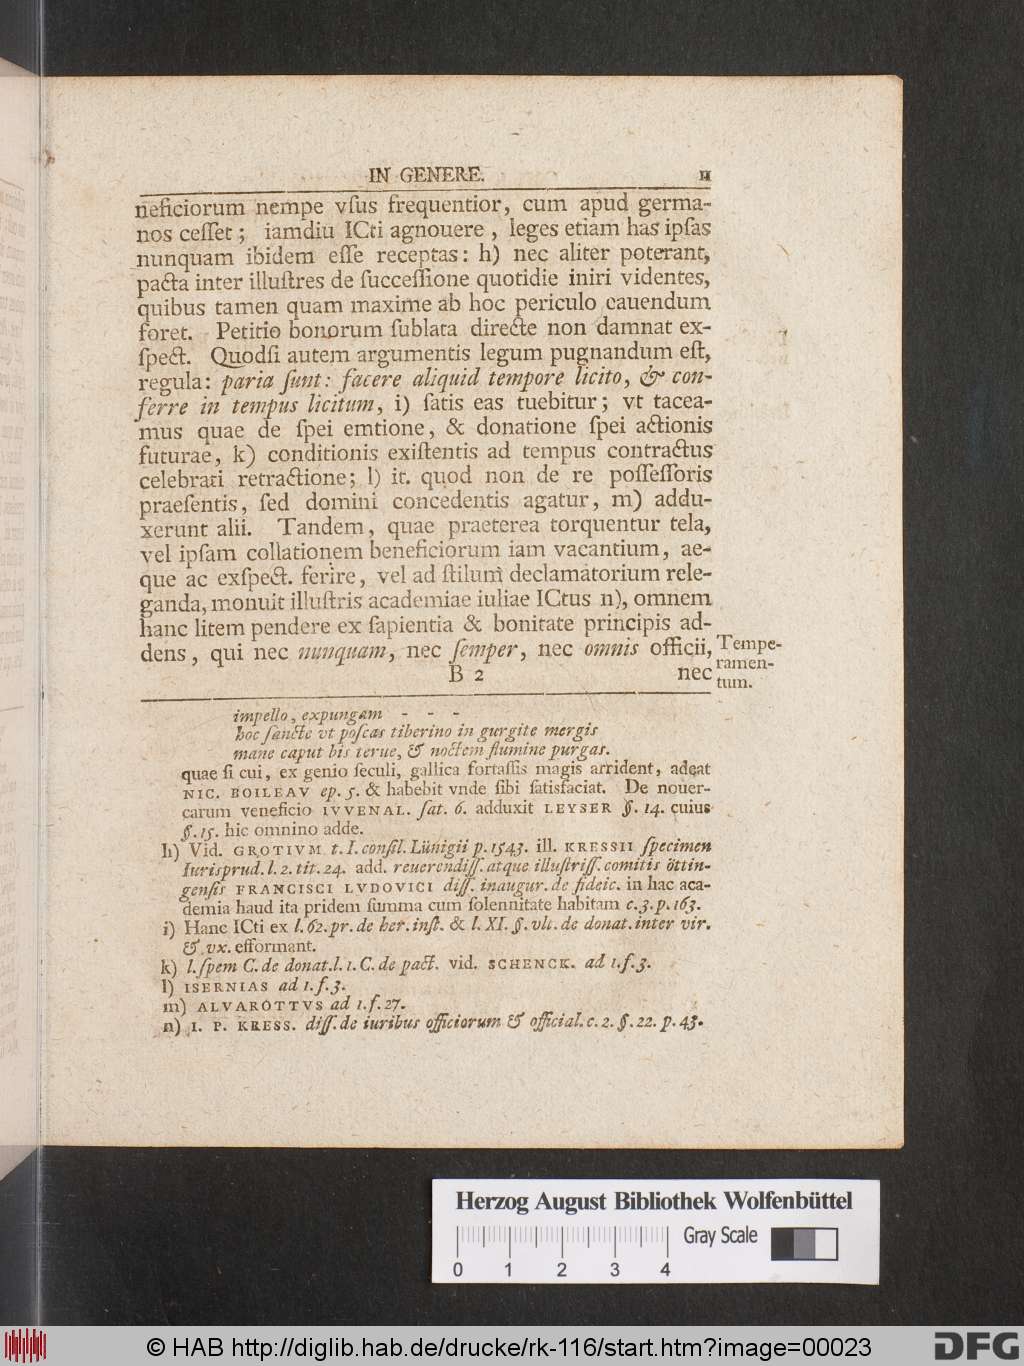 IN GENERE. 11
neficiorum nempe vſus frequentior, cum apud germa-
nos ceſſet; iamdiu ICti agnouere, leges etiam has ipſas
nunquam ibidem eſſe receptas: h) nec aliter poterant,
pacta inter illuſtres de ſucceſſione quotidie iniri videntes,
quibus tamen quam maxime ab hoc periculo cauendum
foret. Petitio bonorum ſublata directe non damnat ex-
ſpect. Quodſi autem argumentis legum pugnandum eſt,
regula: paria ſunt: facere aliquid tempore licito, & con-
ferre in tempus licitum, i) ſatis eas tuebitur; vt tacea-
mus quae de ſpei emtione, & donatione ſpei actionis
futurae, k) conditionis exiſtentis ad tempus contractus
celebrati retractione; l) it. quod non de re poſſeſſoris
praeſentis, ſed domini concedentis agatur, m) addu-
xerunt alii. Tandem, quae praeterea torquentur tela,
vel ipſam collationem beneficiorum iam vacantium, ae-
que ac exſpect. ferire, vel ad ſtilum declamatorium rele-
ganda, monuit illuſtris academiae iuliae ICtus n), omnem
hanc litem pendere ex ſapientia & bonitate principis ad-
dens, qui nec nunquam, nec ſemper, nec omnis officii,
Tempe-
ramen-
tum.
B 2 nec
impello, expungam - - -
hoc ſancte vt poſcas tiberino in gurgite mergis
mane caput bis terue, & noctem flumine purgas.
quae ſi cui, ex genio ſeculi, gallica fortaſſis magis arrident, adeat
NIC. BOILEAV ep. 5. & habebit vnde ſibi ſatisfaciat. De nouer-
carum veneficio IVVENAL. ſat. 6. adduxit LEYSER §. 14. cuius
§. 15. hic omnino adde.
h) Vid. GROTIVM t. I. conſil. Lünigii p. 1543. ill. KRESSII ſpecimen
Iurisprud. l. 2. tit. 24. add. reuerendiſſ. atque illuſtriſſ. comitis öttin-
genſis FRANCISCI LVDOVICI diſſ. inaugur. de fideic. in hac aca-
demia haud ita pridem ſumma cum ſolennitate habitam c. 3. p. 163.
i) Hanc ICti ex l. 62. pr. de her. inſt. & l. XI. §. vlt. de donat. inter vir.
& vx. efformant.
k) l. ſpem C. de donat. l. 1. C. de pact. vid. SCHENCK. ad 1. f. 3.
l) ISERNIAS ad 1. f. 3.
m) ALVAROTTVS ad 1. f. 27.
n) I. P. KRESS. diſſ. de iuribus officiorum & official. c. 2. §. 22. p. 43.
Herzog August Bibliothek Wolfenbüttel
Gray Scale
0 1 2 3 4
© HAB http://diglib.hab.de/drucke/rk-116/start.htm?image=00023
DFG